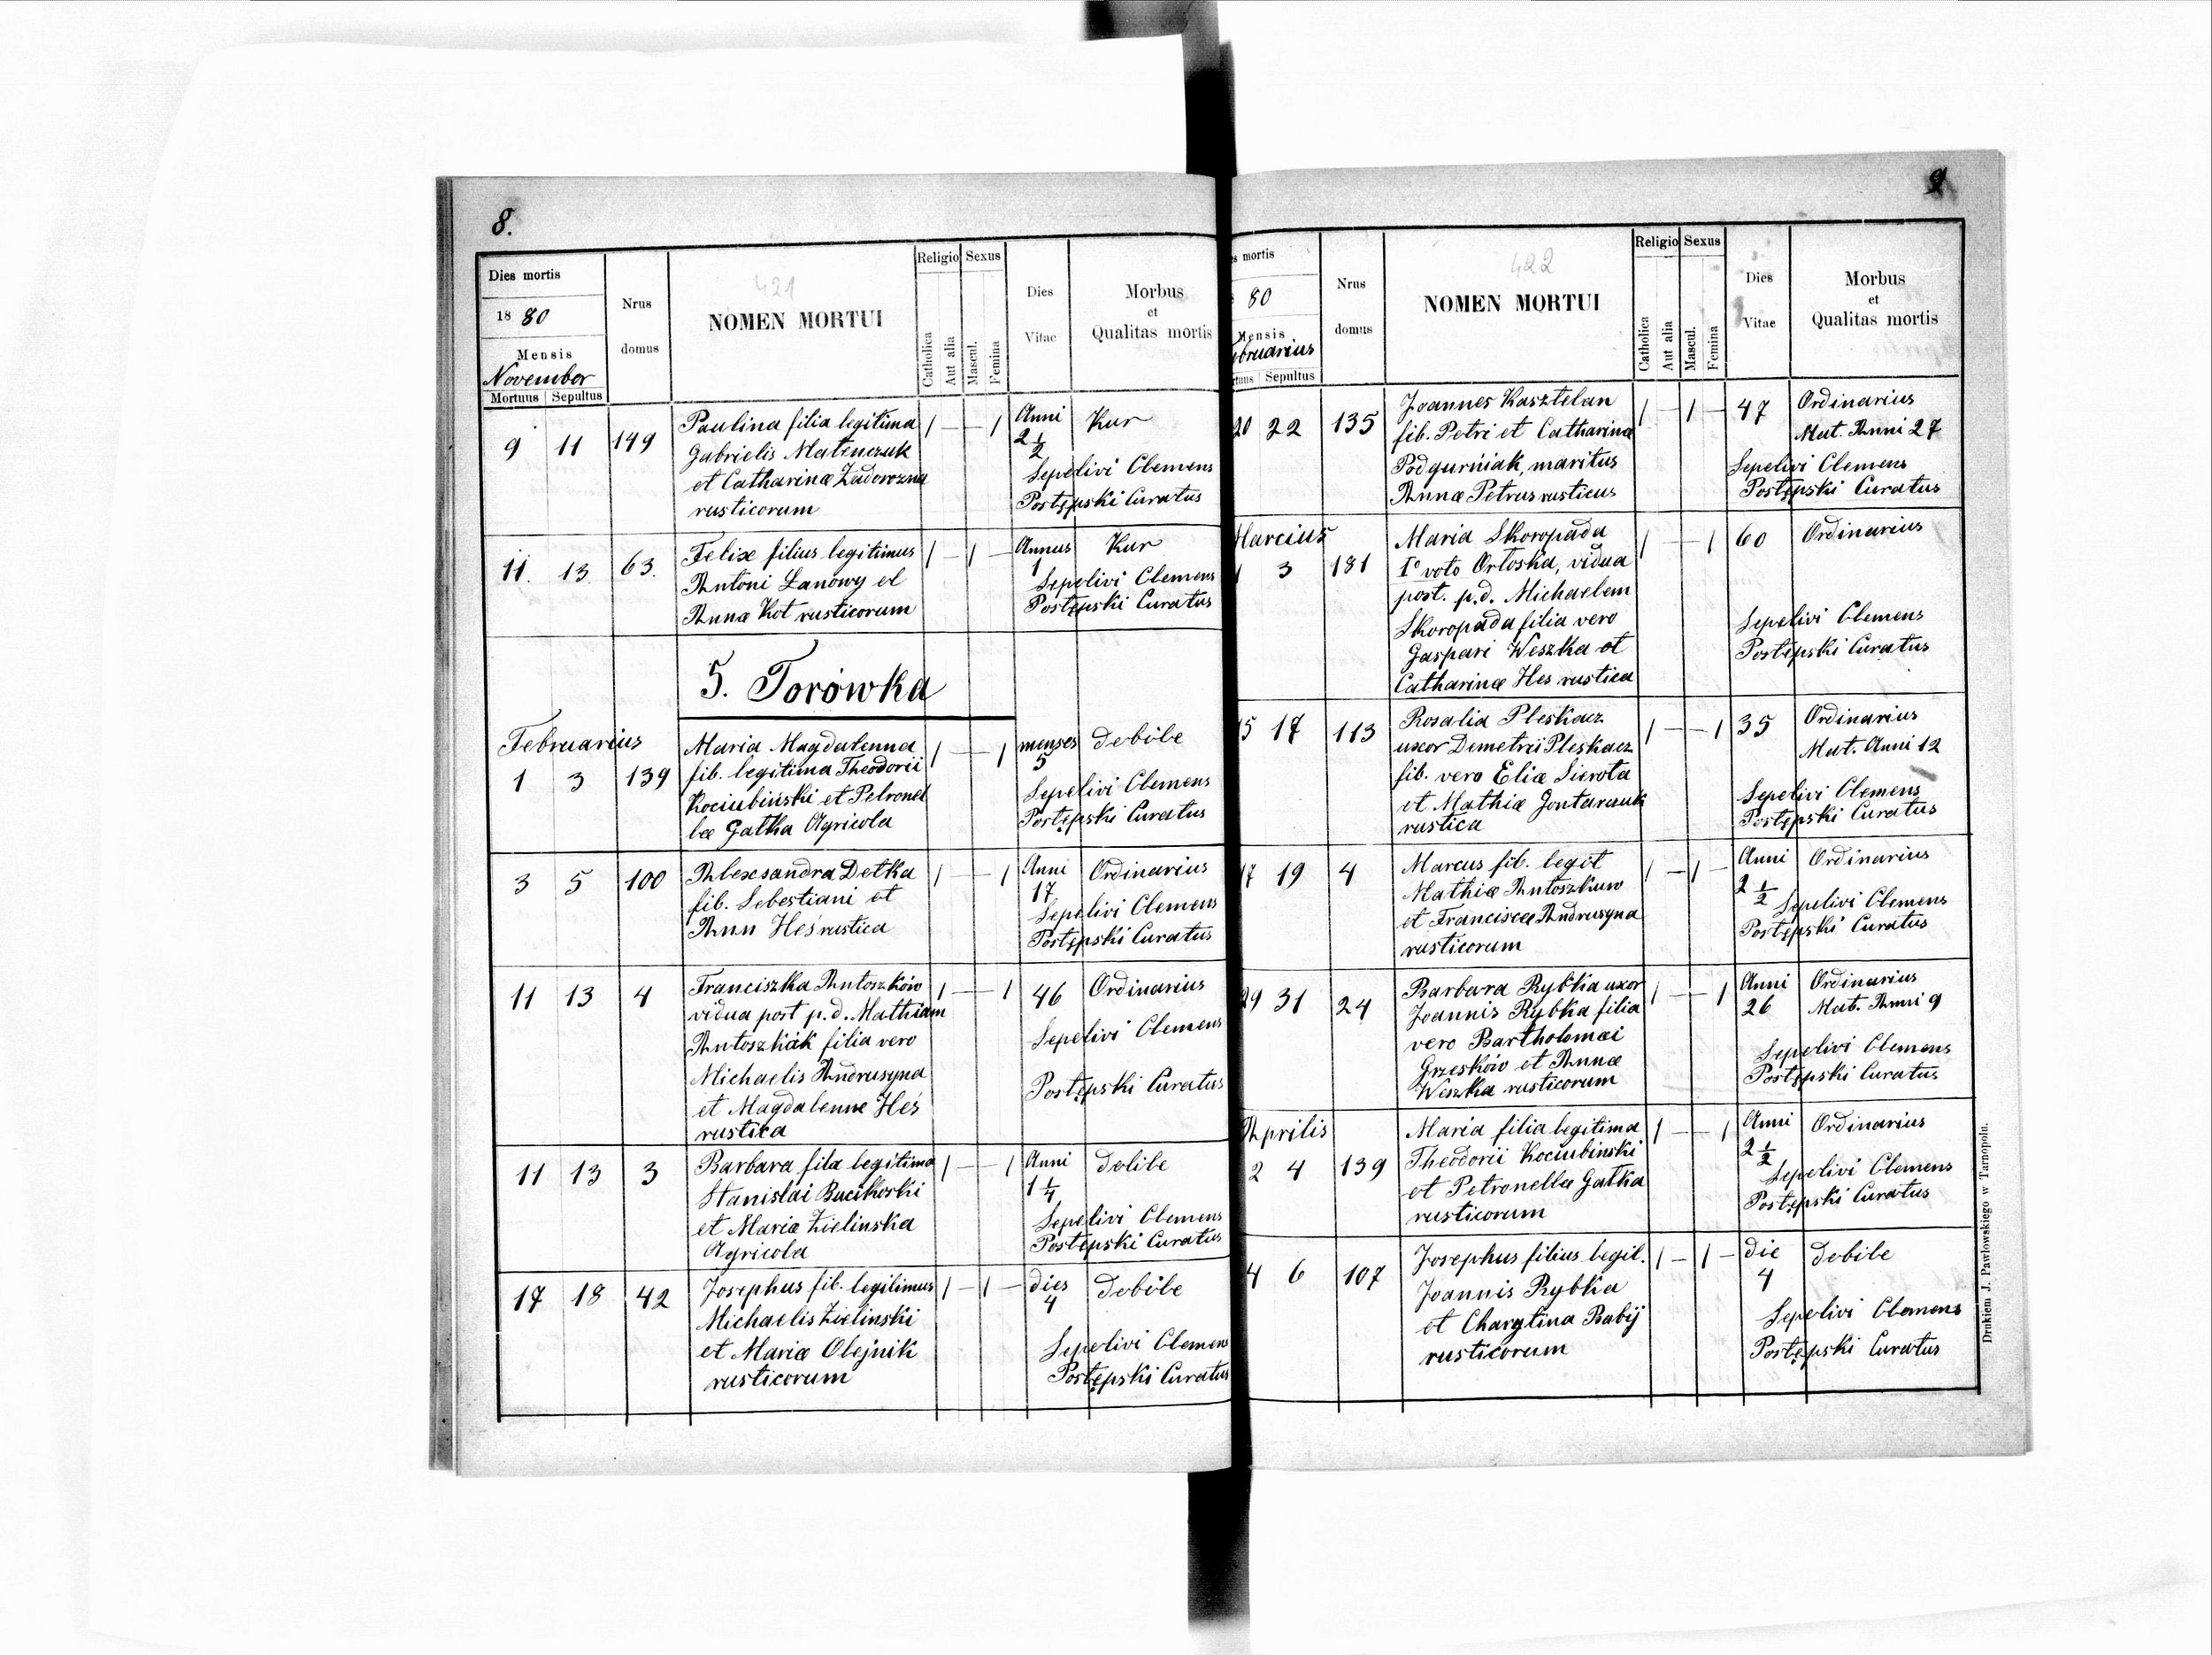 8.
Dies mortis
1880
Mensis
November
Mortuus Sepultus
Nrus
domus
421
NOMEN MORTUI
Religio Sexus
Catholica
Aut alia
Mascul.
Femina
Dies
Vitae
Morbus
et
Qualitas mortis
9 11 149 Paulina filia legitima 1 — — 1 Anni Kur
Gabrielis Matenczuk 2 1/2
et Catharinæ Zadorozna Sepelivi Clemens
rusticorum Postępski Curatus
11. 13. 63. Felix filius legitimus 1 — 1 — Annus Kur
Antoni Lanowy et 1 Sepelivi Clemens
Annæ Kot rusticorum Postępski Curatus
5. Torówka
Februarius
1 3 139 Maria Magdalenna 1 — — 1 menses Debile
fib. legitima Theodorii 5
Kociubiński et Petronel Sepelivi Clemens
læ Gatka Agricola Postępski Curatus
3 5 100 Alexsandra Detka 1 — — 1 Anni Ordinarius
fib. Sebestiani et 17 Sepelivi Clemens
Ann Heś rustica Postępski Curatus
11 13 4 Franciszka Antoszków 1 — — 1 46 Ordinarius
vidua post p.d. Mathiam
Antoszkäk filia vero Sepelivi Clemens
Michaelis Andrusyna
et Magdalenne Heś Postępski Curatus
rustica
11 13 3 Barbara fila legitima 1 — — 1 Anni Delile
Stanislai Bucikoski 1 1/4
et Mariæ Zielinska Sepelivi Clemens
Agricola Postępski Curatus
17 18 42 Josephus fib. legitimus 1 — 1 — dies Debile
Michaelis Zielinski 4
et Mariæ Olejnik Sepelivi Clemens
rusticorum Postępski Curatus
9
mortis
80
Mensis
bruarius
Sepultus
Nrus
domus
422
NOMEN MORTUI
Religio Sexus
Catholica
Aut alia
Mascul.
Femina
Dies
Vitae
Morbus
et
Qualitas mortis
20 22 135 Joannes Kasztelan 1 — 1 — 47 Ordinarius
fib. Petri et Catharinæ Mat. Anni 27
Podgurniak, maritus Sepelivi Clemens
Annæ Petrus rusticus Postępski Curatus
Marcius
1 3 181 Maria Skoropada 1 — — 1 60 Ordinarius
I° voto Ortoska, vidua
post. p.d. Michaelem
Skoropada filia vero Sepelivi Clemens
Gaspari Weszka et Postępski Curatus
Catharinæ Hes rustica
15 17 113 Rosalia Pleskacz 1 — — 1 35 Ordinarius
uxor Demetrii Pleskacz Mat. Anni 12
fib. vero Eliæ Sierota
et Mathiæ Gontarczuk Sepelivi Clemens
rustica Postępski Curatus
17 19 4 Marcus fib. legit 1 — 1 — Anni Ordinarius
Mathiæ Antoszkuw 2 1/2 Sepelivi Clemens
et Francisca Andrusyna Postępski Curatus
rusticorum
29 31 24 Barbara Rybka uxor 1 — — 1 Anni Ordinarius
Joannis Rybka filia 26 Mat. Anni 9
vero Bartholomæi
Grzesków et Annæ Sepelivi Clemens
Weszka rusticorum Postępski Curatus
Aprilis
2 4 139 Maria filia legitima 1 — — 1 Anni Ordinarius
Theodorii Kociubinski 2 1/2
et Petronella Gatka Sepelivi Clemens
rusticorum Postępski Curatus
4 6 107 Josephus filius legit. 1 — 1 — die Debile
Joannis Rybka 4
et Charytina Babij Sepelivi Clemens
rusticorum Postępski Curatus
Drukiem J. Pawłowskiego w Tarnopolu.